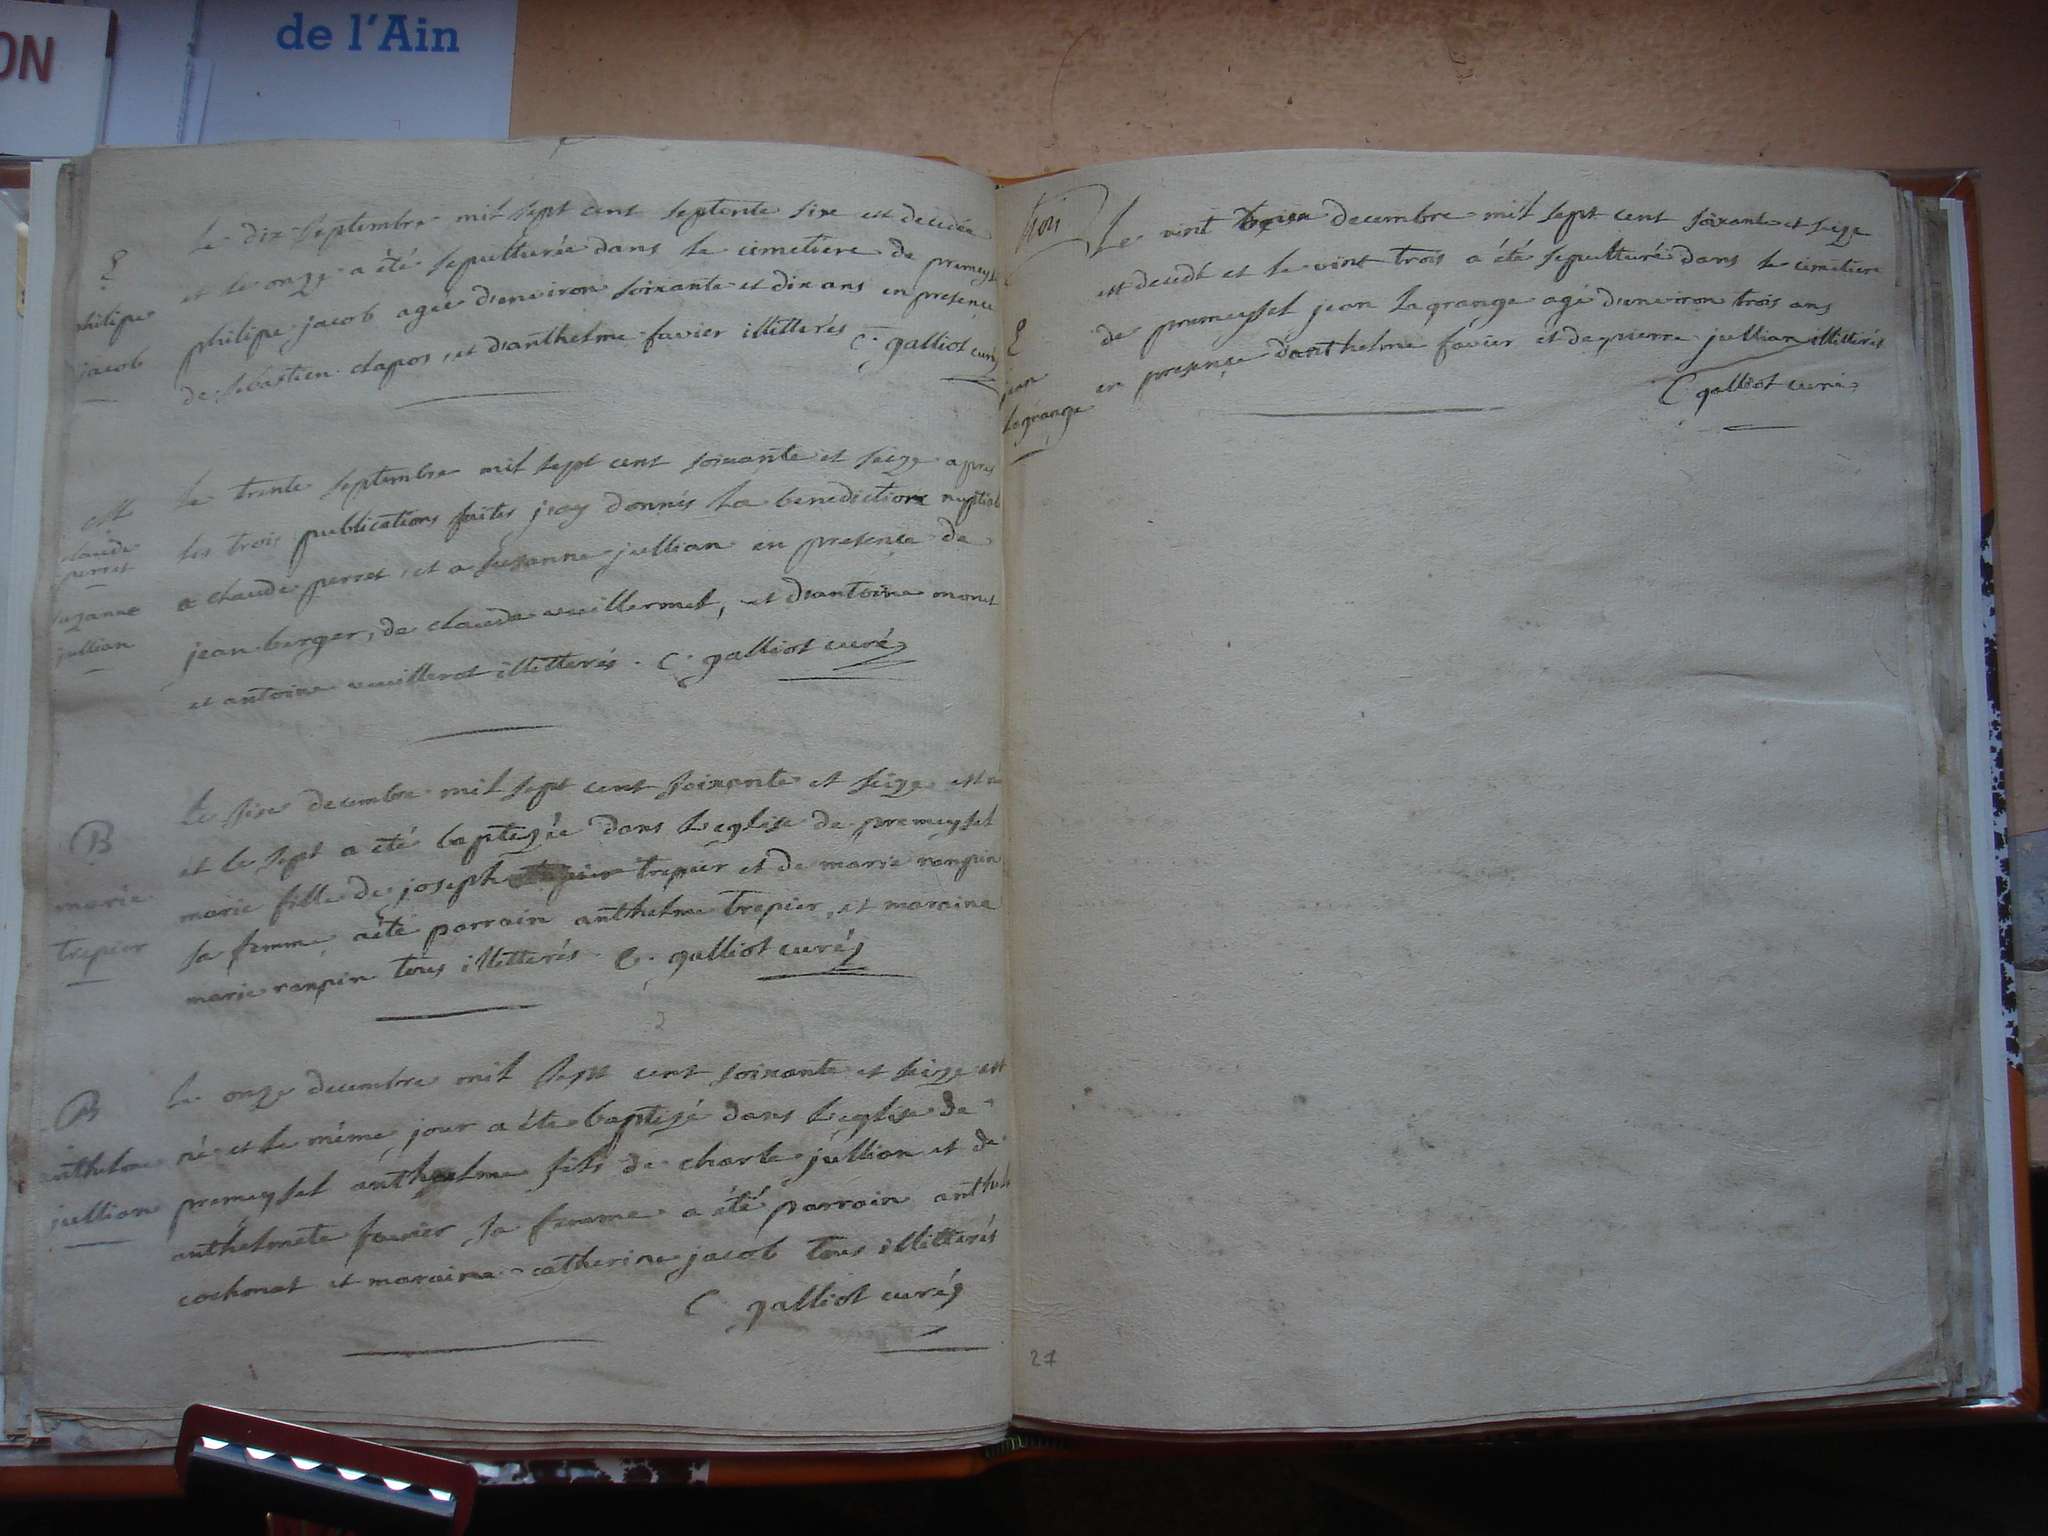 ON
de l'Ain
Le dix septembre mil sept cent septente six est decedée
et le onze a été sepulturée dans le cimetiere de premeysel
philipe jacob agée d'environ soixante et dix ans en presence
de sebastien clapos, et d'anthelme favier illetterés C. galliot curé
philipe
jacob
le trente septembre mil sept cent soixante et seize apres
les trois publications faites j'ay donnés la benediction nuptial
a claude perret, et a suzanne jullian en presence de
jean berger, de claude vuillermet, et d'antoine monet
et antoine vuillerot illetterés. C. galliot curé
M
claude
perret
suzanne
jullian
le sixe decembre mil sept cent soixante et seize est n
et le sept a été baptezée dans l'eglise de premeysel
marie fille de joseph trepier et de marie ranpin
sa femme, a été parrain anthelme trepier, et maraine
marie ranpin tous illetterés. C. galliot curé
B
marie
trepier
Le onze decembre mil sept cent soixante et seize est
né et le même jour a été baptezé dans l'eglise de
premeysel anthelme fils de charle jullian et de
anthelmete favier sa femme a été parrain anthel
cochonat et maraine catherine jacob tous illetterés
C. galliot curé
B
anthelme
jullian
trois
Le vint decembre mil sept cent soixante et seize
est decedé et le vint trois a été sepulturé dans le cimetiere
de premeysel jean lagrange agé d'environ trois ans
en presence d'anthelme favier et de pierre jullian illitterés
C. galliot curé
jean
lagrange
27